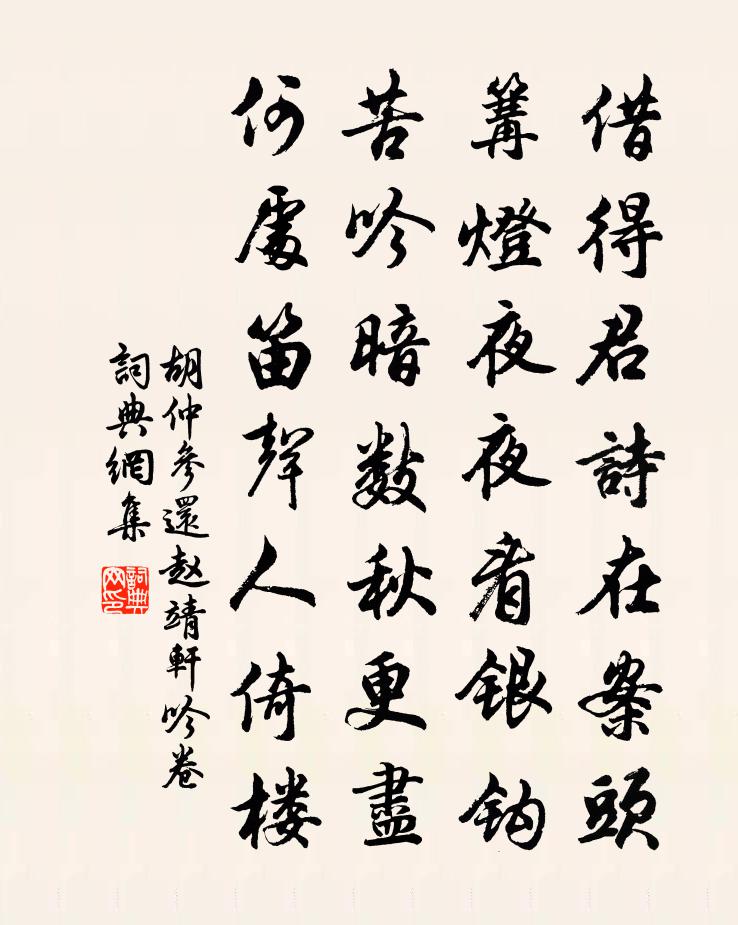 借得君詩在案頭
篝燈夜夜看银钩
苦吟暗数秋更盡
何處笛聲人倚楼
胡仲參還赵靖軒吟卷
詞典網集
詞典网印